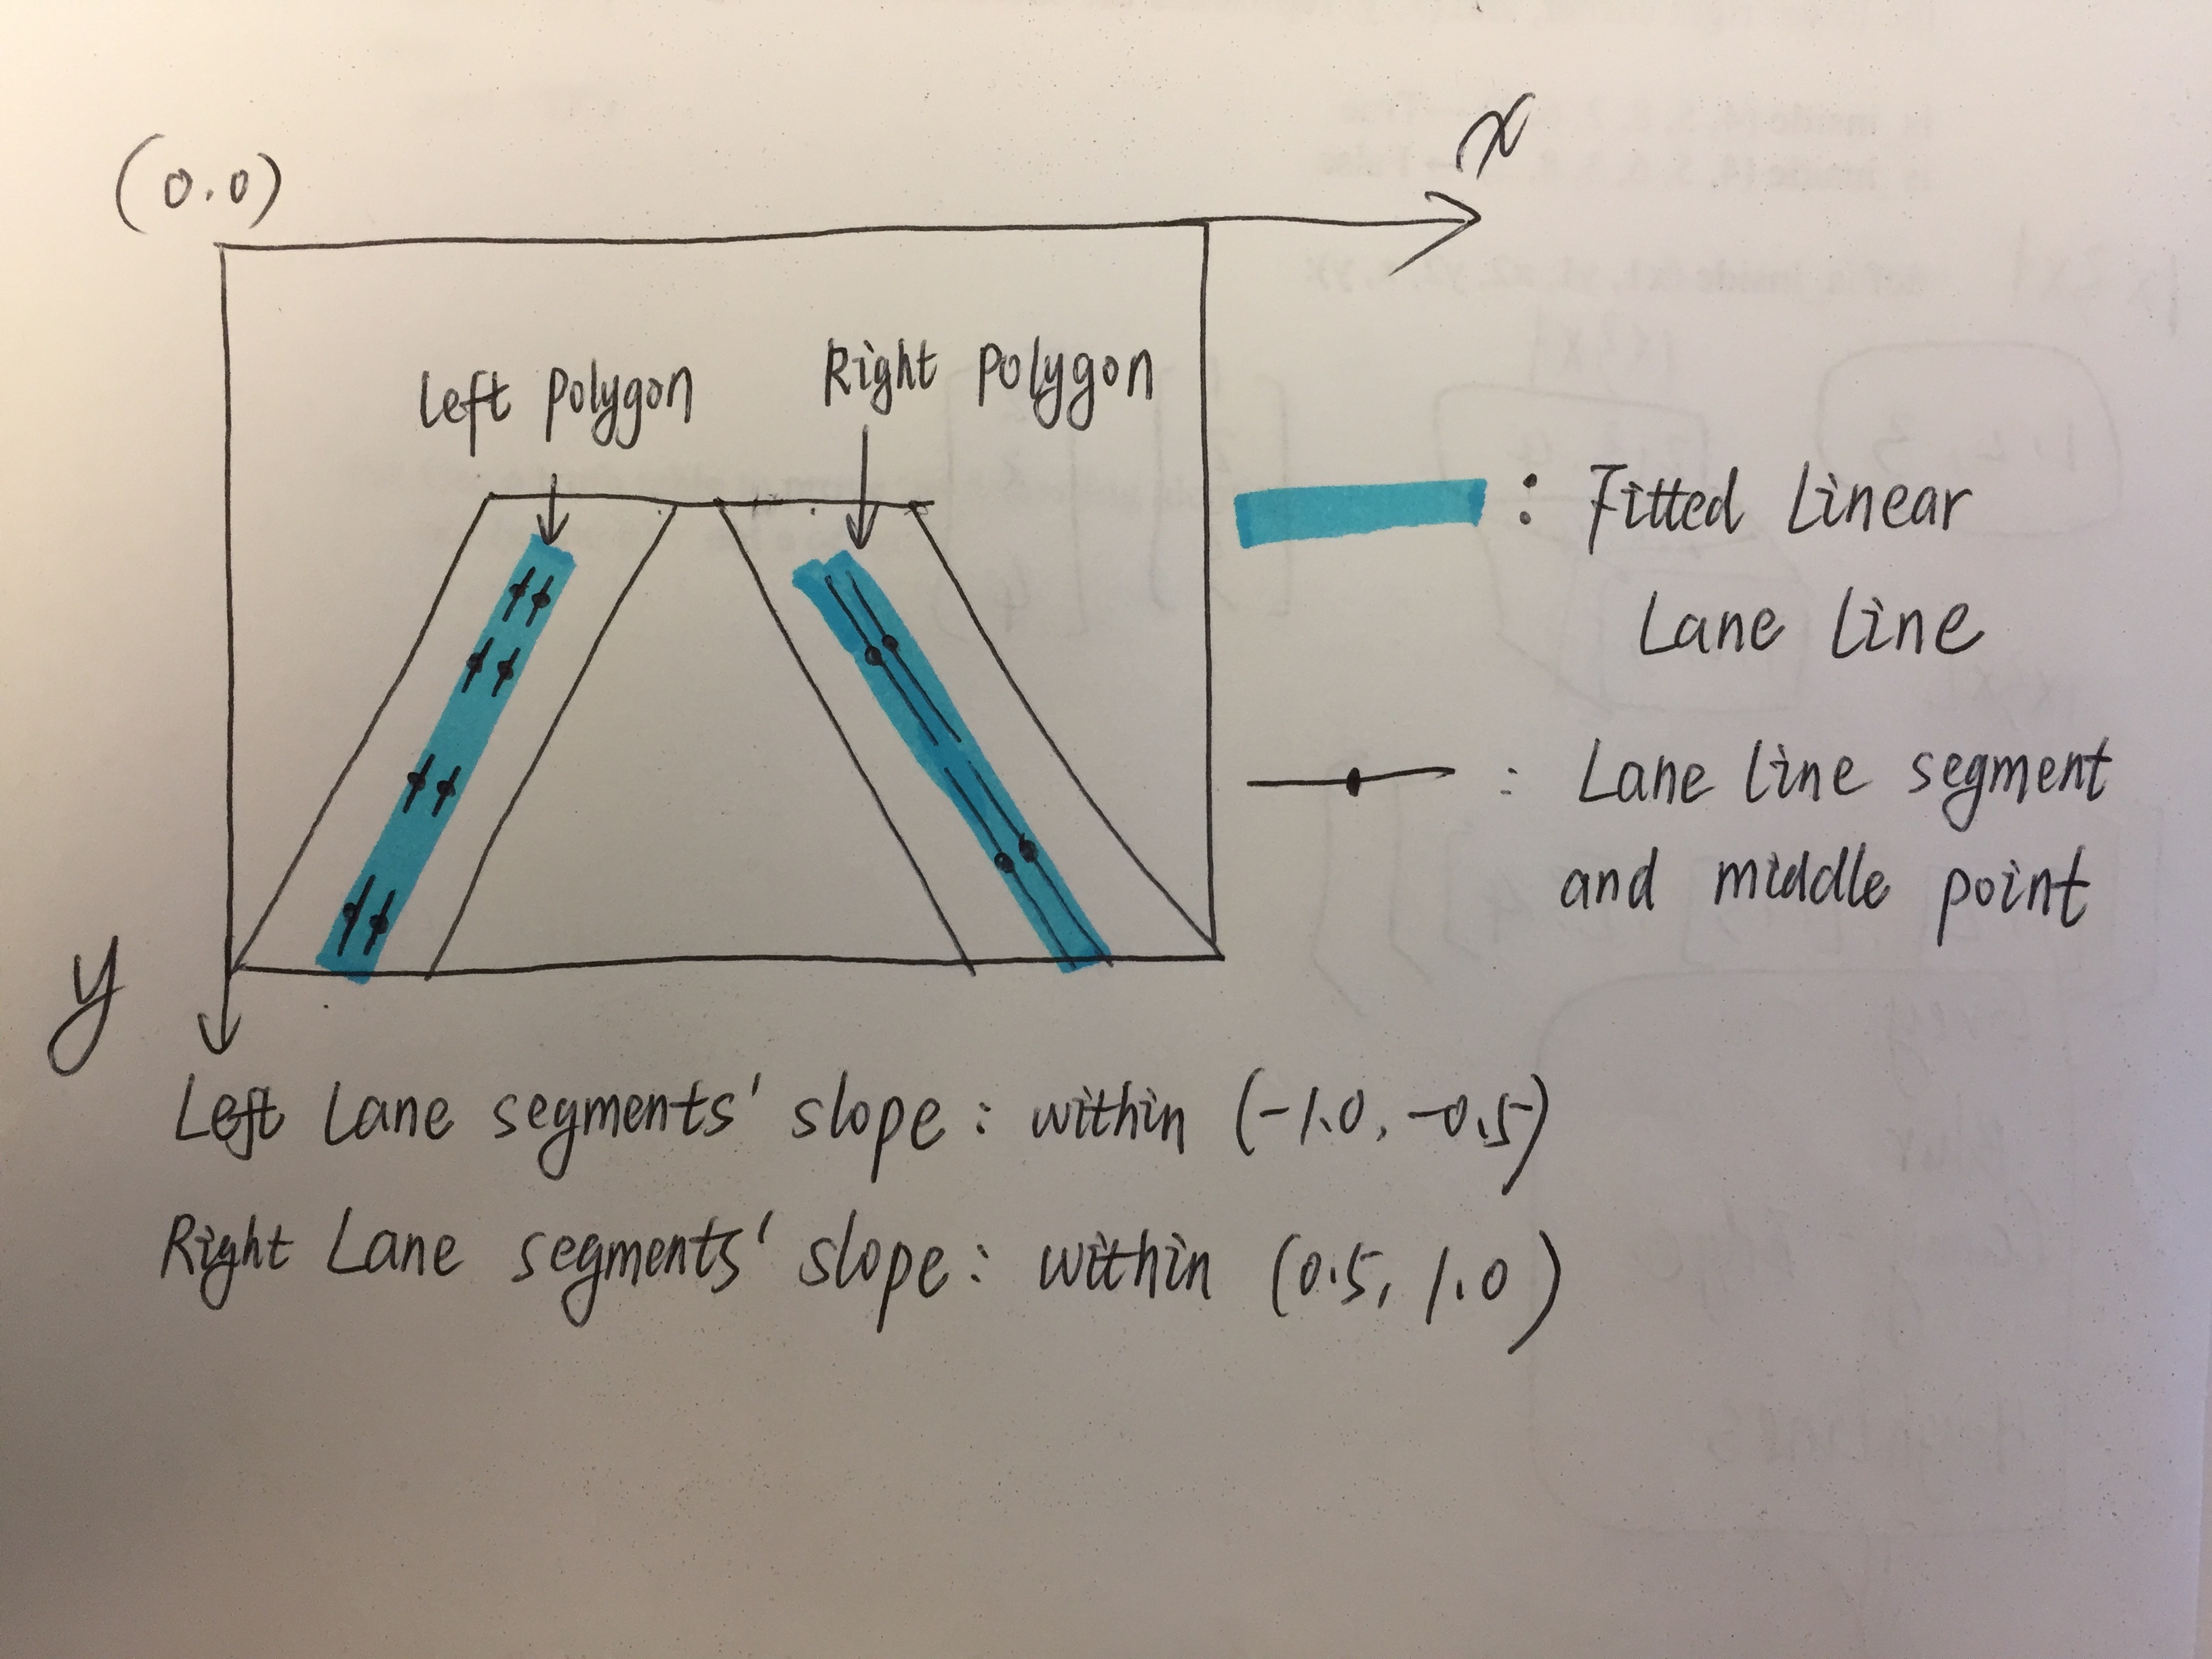 (0.0)
x
Left polygon
Right polygon
: Fitted Linear
Lane Line
: Lane line segment
and middle point
y
Left Lane segments' slope: within (-1.0, -0.5)
Right Lane segments' slope: within (0.5, 1.0)